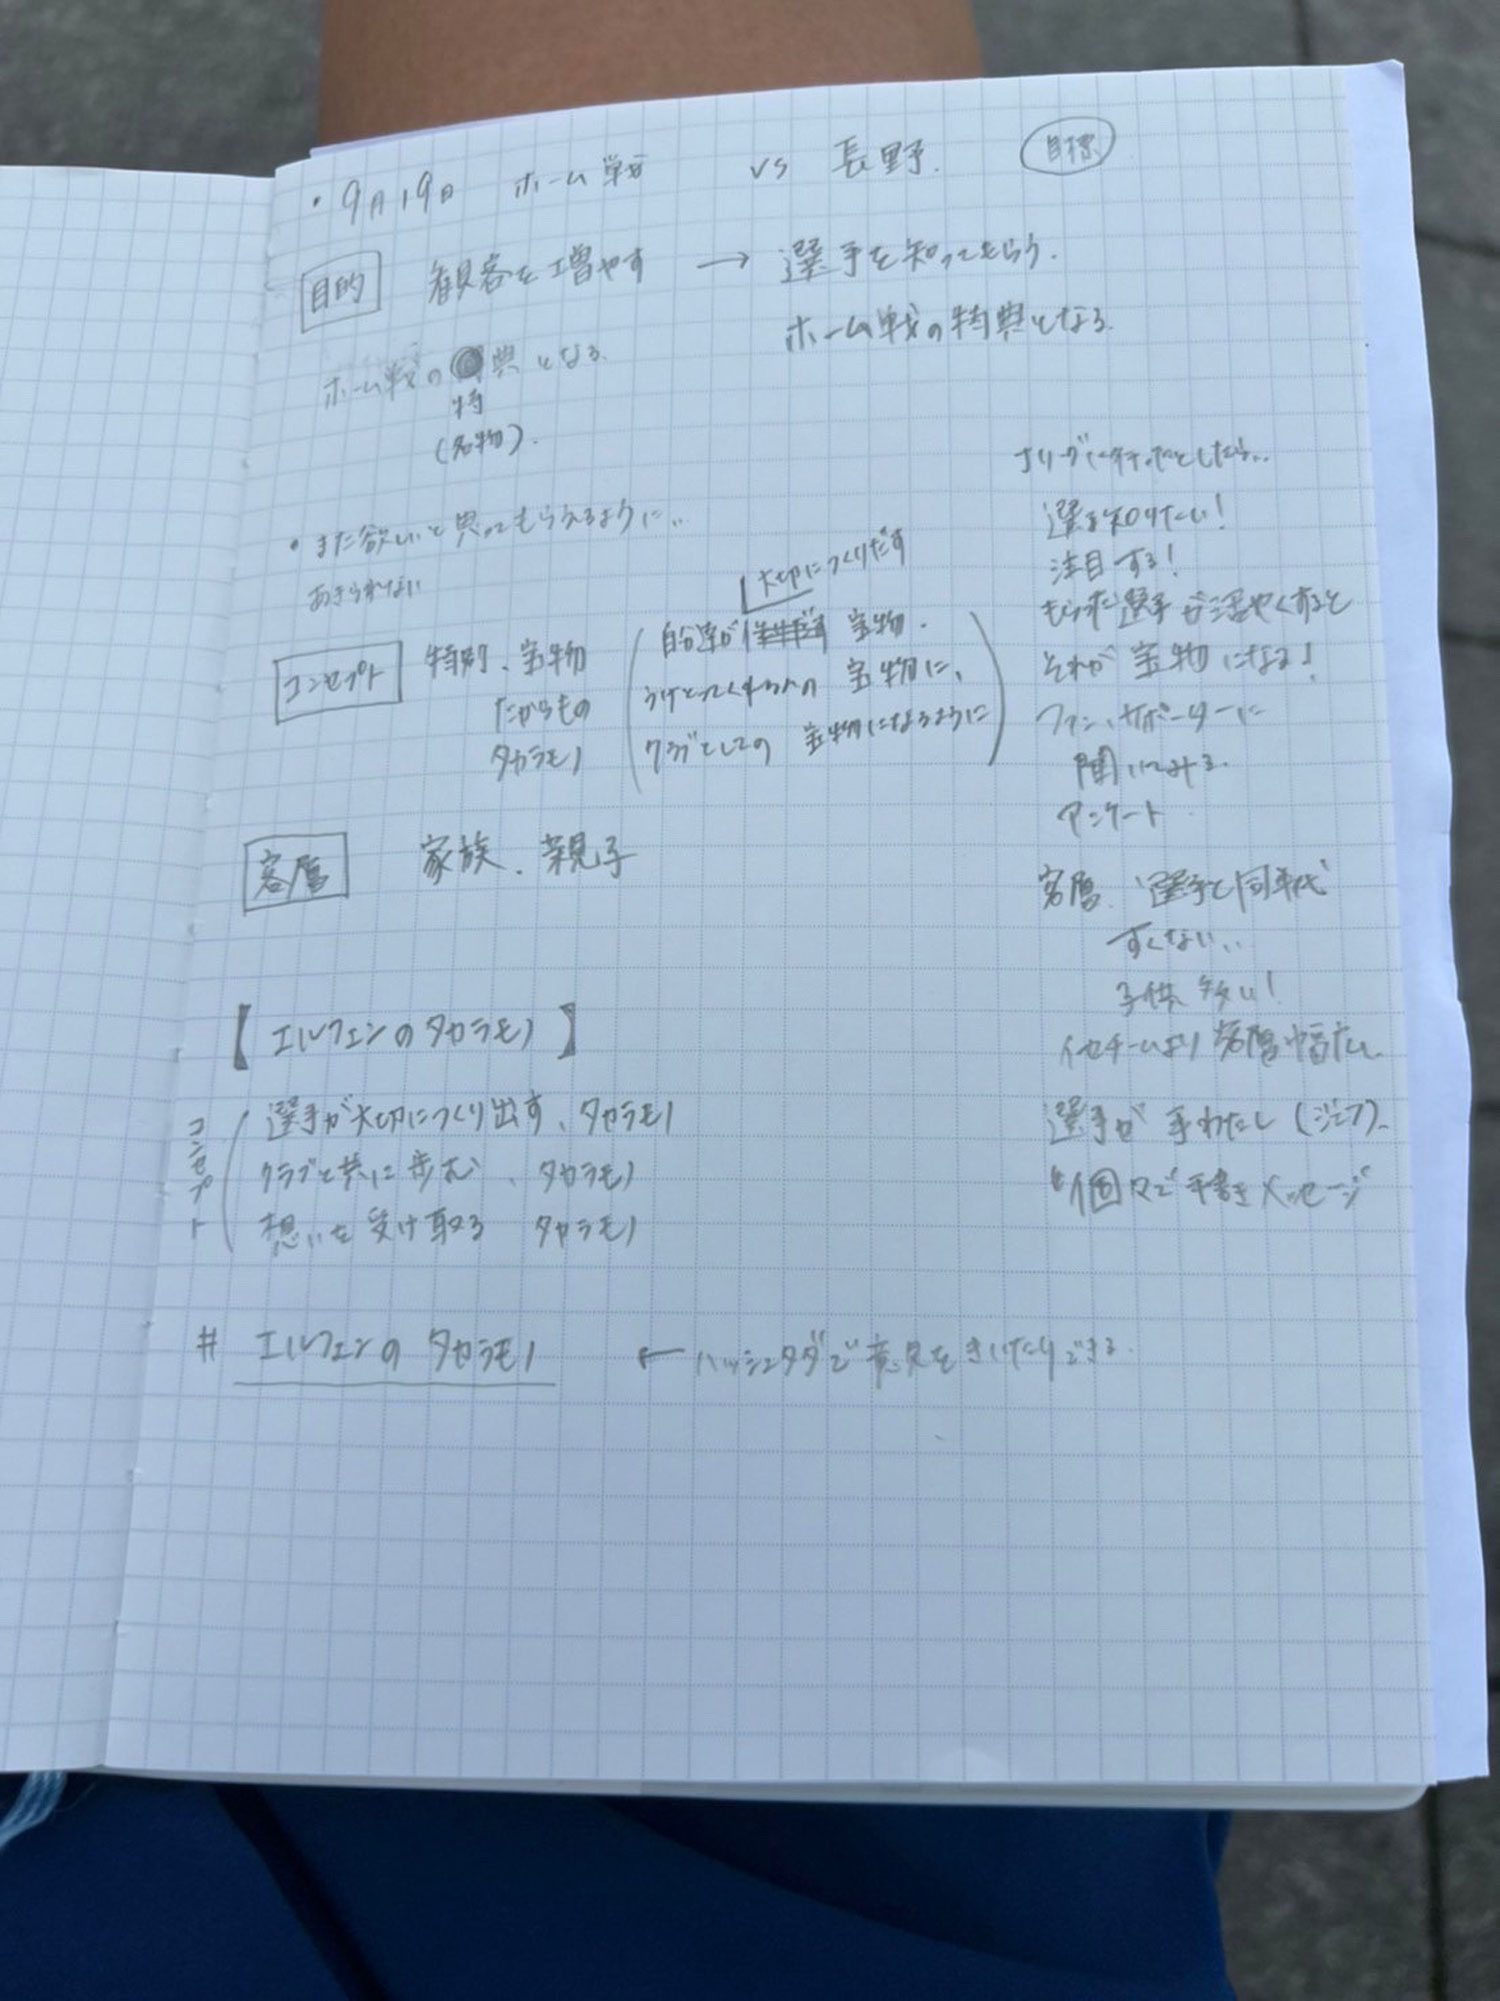 ・9月19日 ホーム戦 vs 長野. 目標
目的 観客を増やす → 選手を知ってもらう.
ホーム戦の特典となる.
ホーム戦の 典となる.
特
(名物).
・また欲しいと思ってもらえるように..
あきられない
コンセプト 特別、宝物
だからもの
タカラモノ
大切につくりだす
自分達が 宝物.
うけとってくれる人の 宝物に、
クラブとしての 宝物になるように
客層 家族、親子
【エルフェンのタカラモノ】
コンセプト
選手が大切につくり出す、タカラモノ
クラブと共に歩む、タカラモノ
想いを受け取る タカラモノ
# エルフェンのタカラモノ ← ハッシュタグで意見をきいたりできる.
選手知りたい!
注目する!
もらった選手が活やくすると
それが宝物になる!
ファン、サポーターに
聞いてみる.
アンケート
客層、選手と同年代
すくない..
子供、多い!
客層幅広い
選手が手わたし
個々で手書きメッセージ